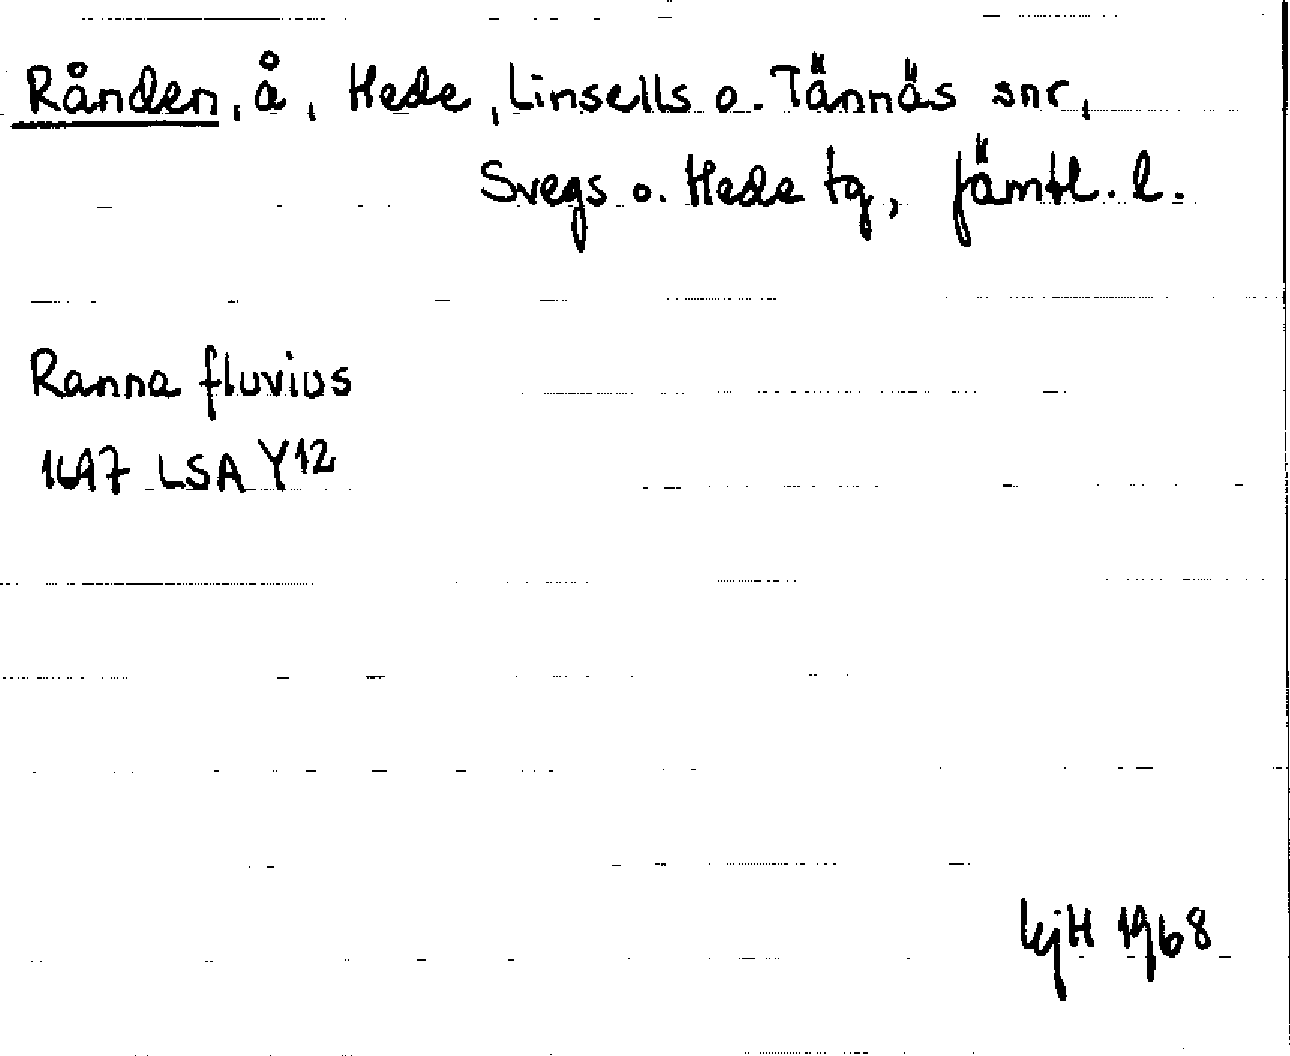 Rånden, å, Hede, Linsells o. Tännäs snr,
Svegs o. Hede tg, Jämtl. l.
Ranna fluvius
1697 LSA Y12
1968